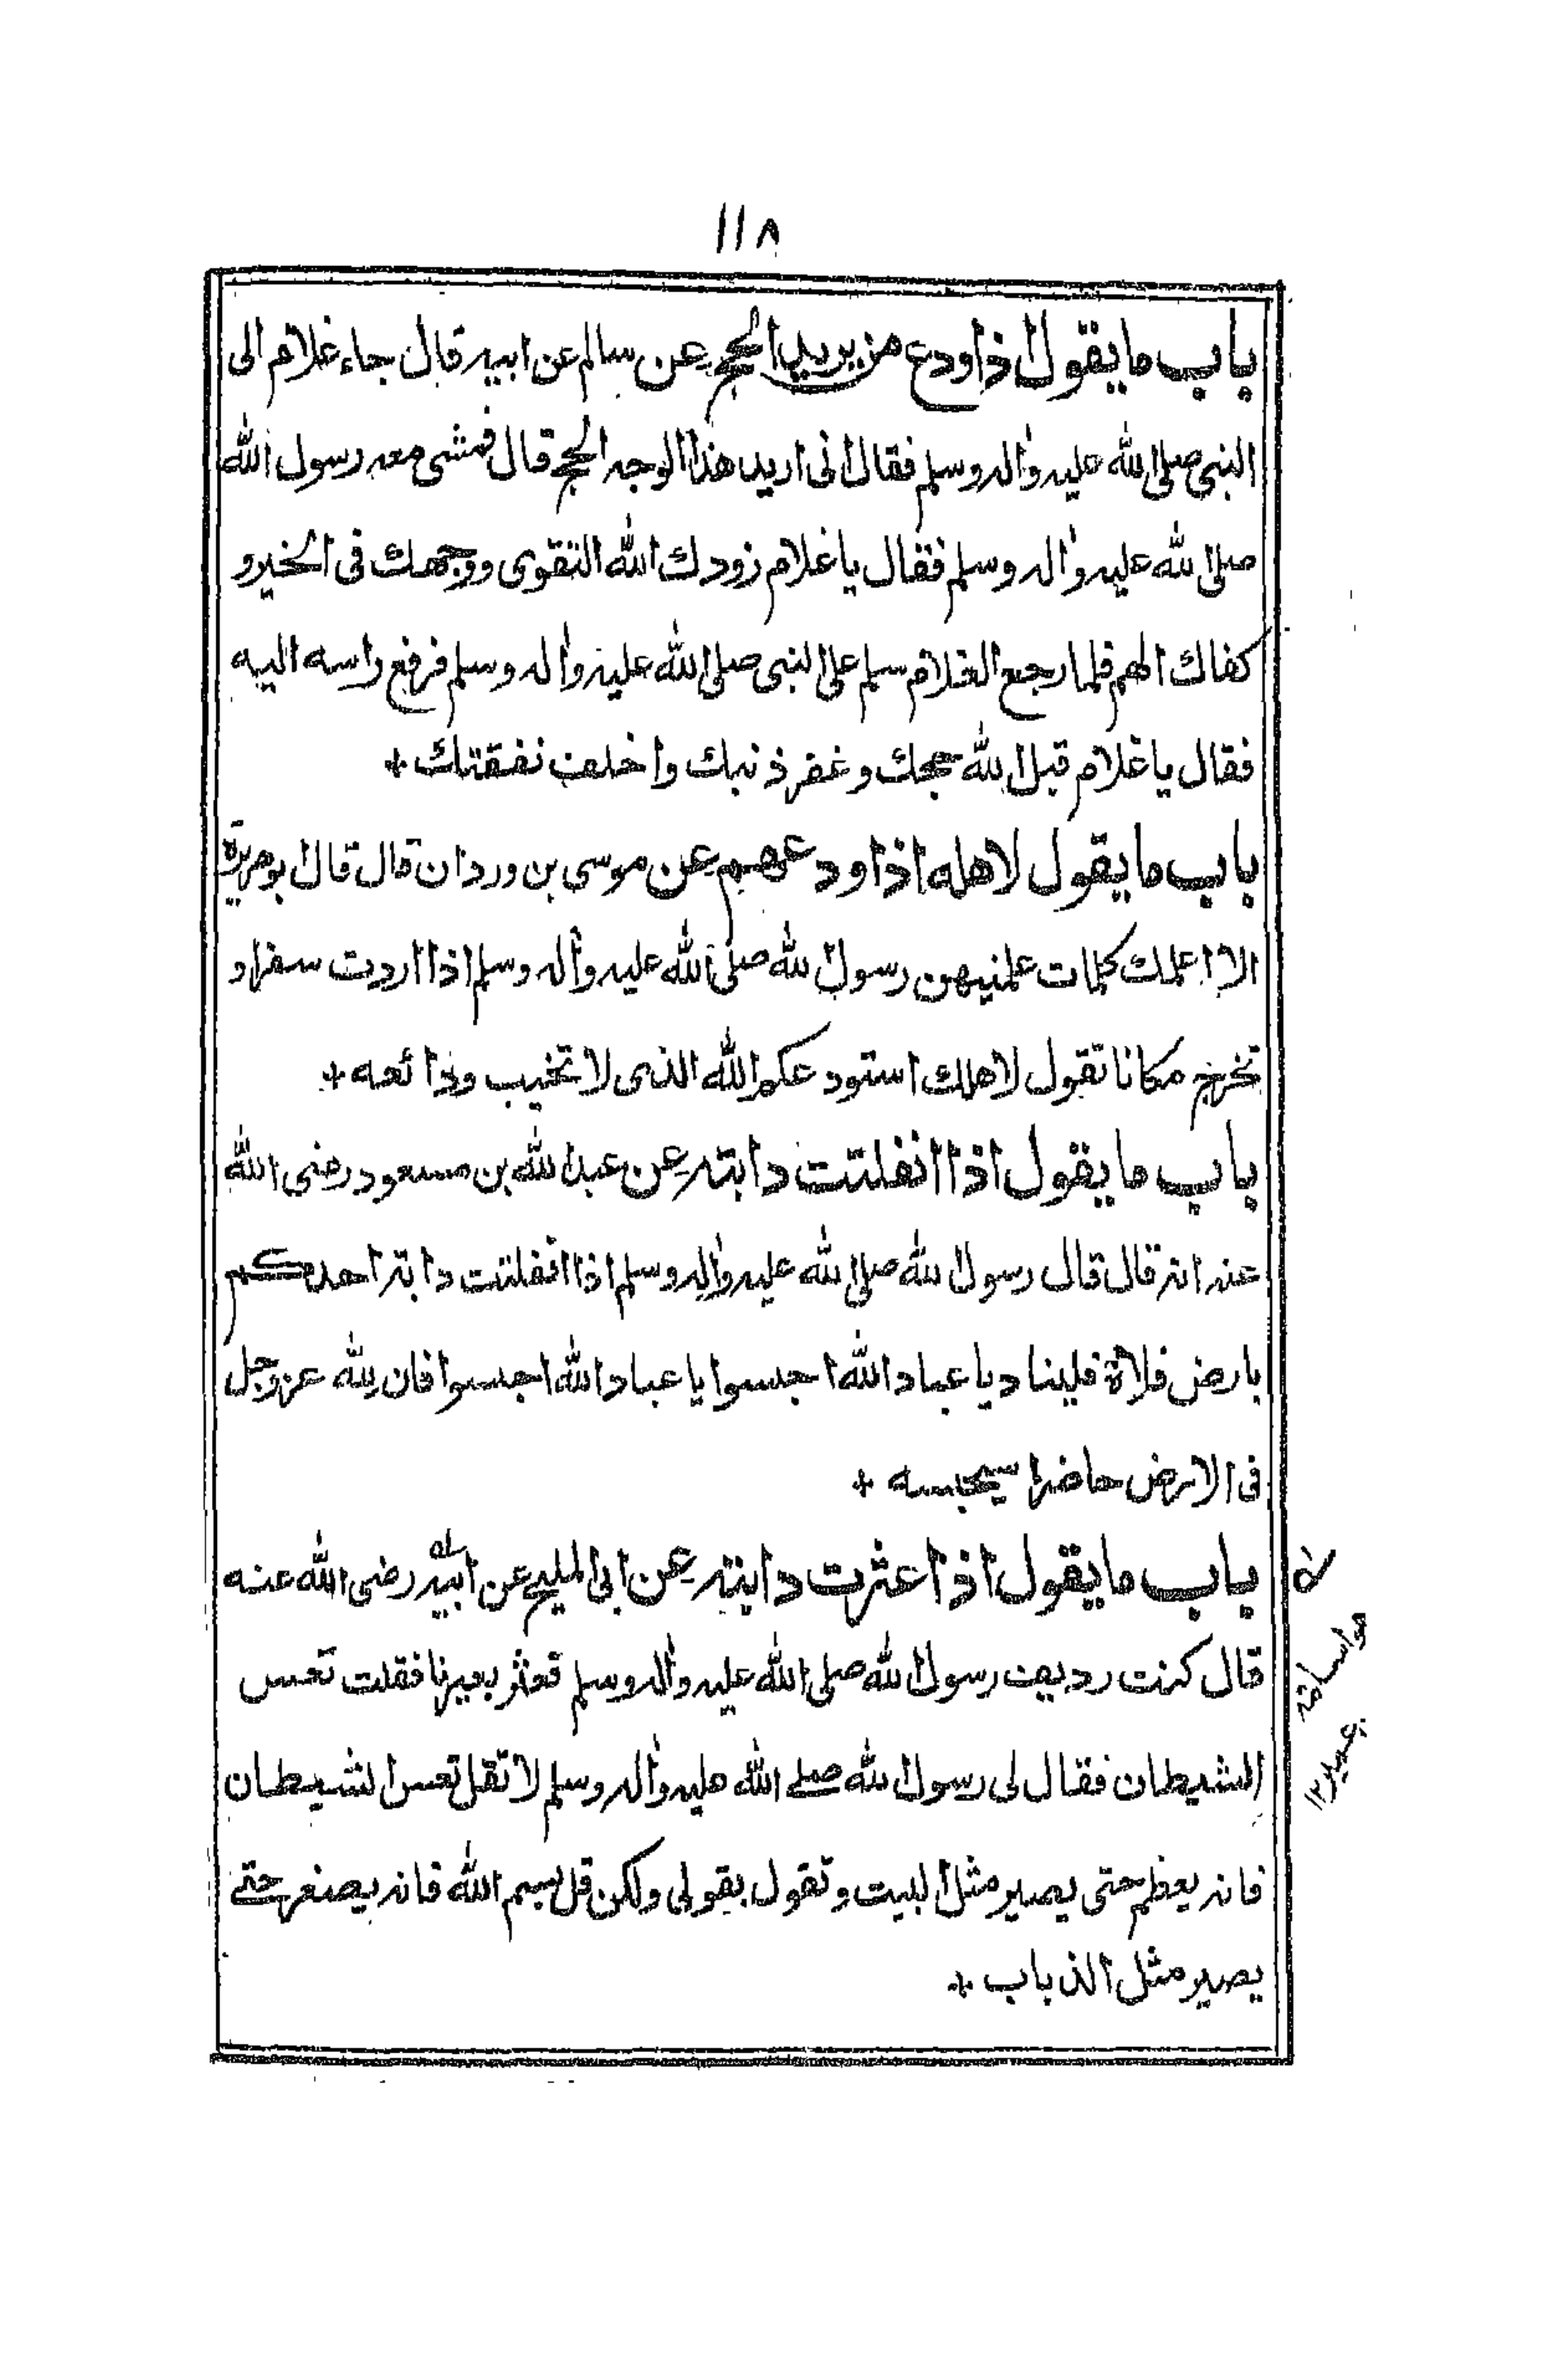 ١١٨
باب ما يقول اذا ودع من يريد الحج عن سالم عن ابيه قال جاء غلام الى
النبي صلى الله عليه واٰله وسلم فقال انى اريد هذا الوجه الحج قال فمشى معه رسول الله
صلى الله عليه واٰله وسلم فقال يا غلام زودك الله التقوى ووجهك فى الخير و
كفاك الهم فلما رجع الغلام سلم على النبى صلى الله عليه واٰله وسلم فرفع راسه اليه
فقال يا غلام قبل الله حجك وغفر ذنبك واخلف نفقتك +
باب ما يقول لاهله اذا ودعهم عن موسى بن وردان قال قال ابوهريرة
الا اعلمك كلمات علمنيهن رسول الله صلى الله عليه واٰله وسلم اذا اردت سفرا و
تخرج مكانا تقول لاهلك استودعكم الله الذى لا تخيب ودائعه +
باب ما يقول اذا انفلتت دابته عن عبد الله بن مسعود رضى الله
عنه انه قال قال رسول الله صلى الله عليه واٰله وسلم اذا انفلتت دابة احدكم
بارض فلاة فليناد يا عباد الله احبسوا يا عباد الله احبسوا فان لله عز وجل
فى الارض حاضرا سيحبسه +
باب ما يقول اذا عثرت دابته عن ابى المليح عن ابيه رضى الله عنه
قال كنت رديف رسول الله صلى الله عليه واٰله وسلم فعثر بعيرنا فقلت تعس
الشيطان فقال لى رسول الله صلے الله عليه واٰله وسلم لا تقل تعس الشيطان
فانه يعظم حتى يصير مثل البيت وتقول بقولى ولكن قل بسم الله فانه يصغر حتے
يصير مثل الذباب +
هو اسامة
بن عمير ١٢